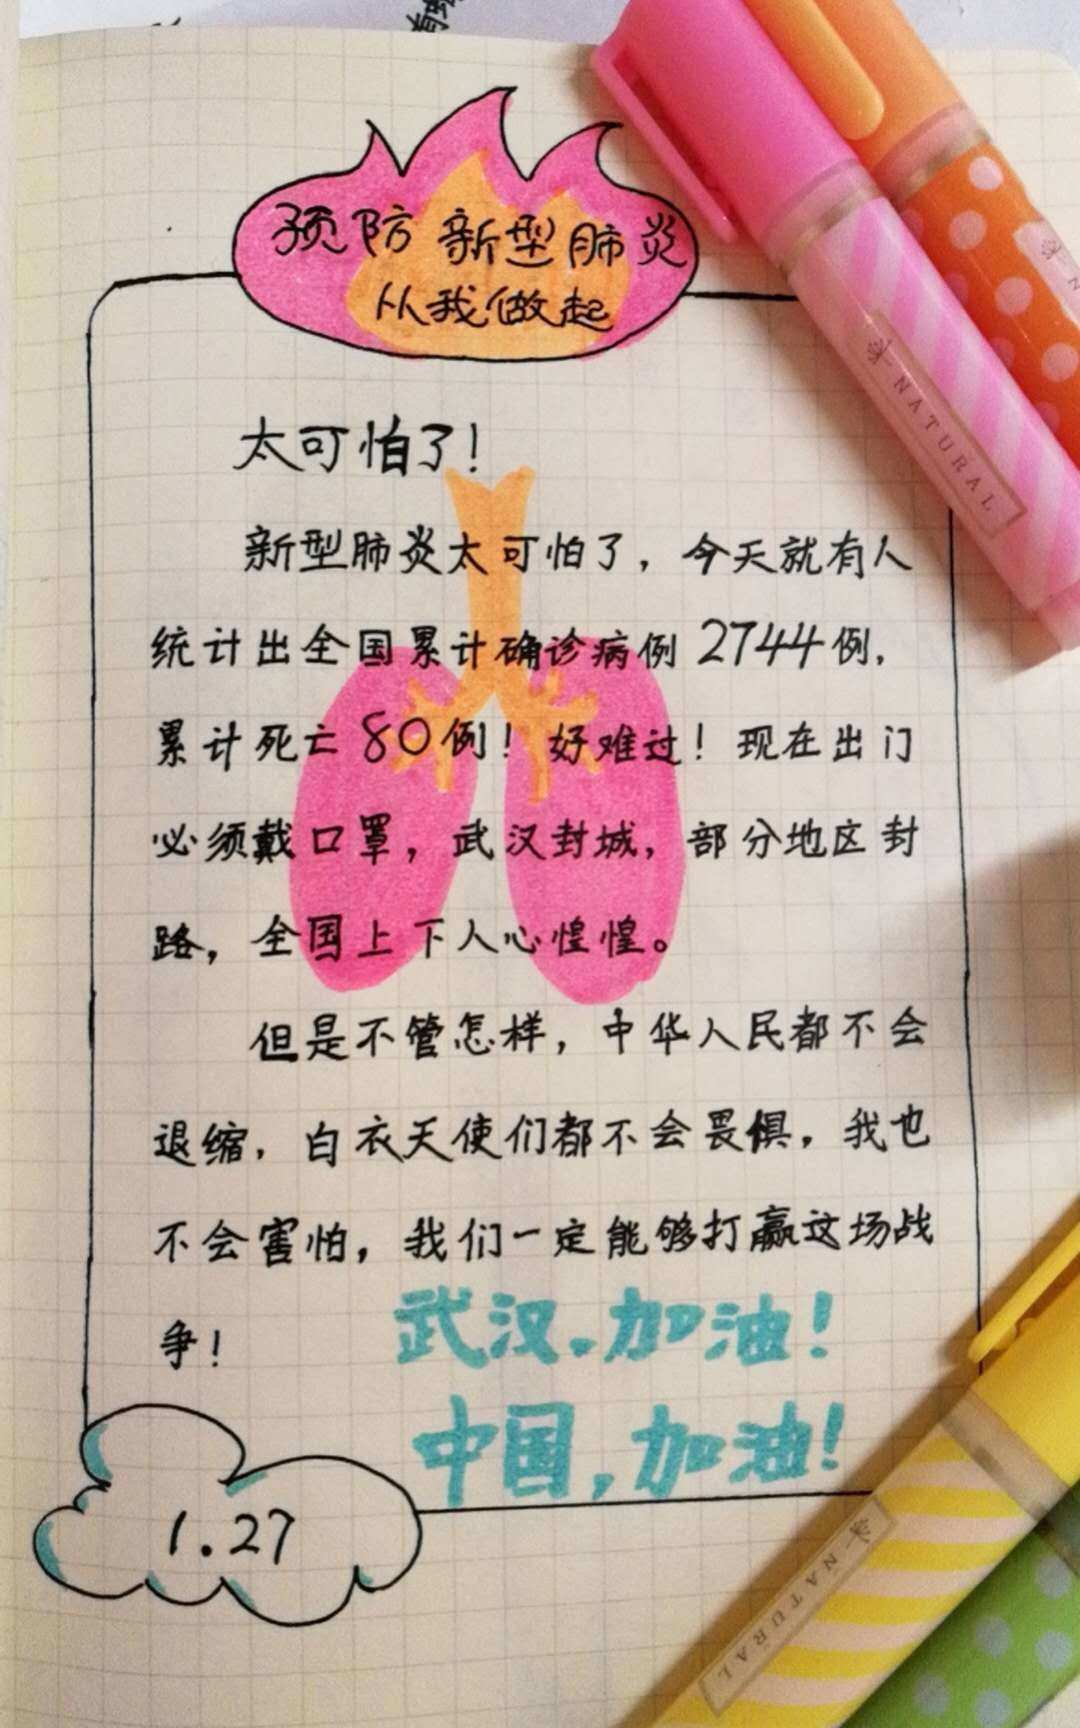 预防新型肺炎
从我做起
太可怕了!
新型肺炎太可怕了，今天就有人
统计出全国累计确诊病例2744例，
累计死亡80例!好难过!现在出门
必须戴口罩，武汉封城，部分地区封
路，全国上下人心惶惶。
但是不管怎样，中华人民都不会
退缩，白衣天使们都不会畏惧，我也
不会害怕，我们一定能够打赢这场战
争!
武汉,加油!
中国,加油!
1.27
NATURAL
NATURAL